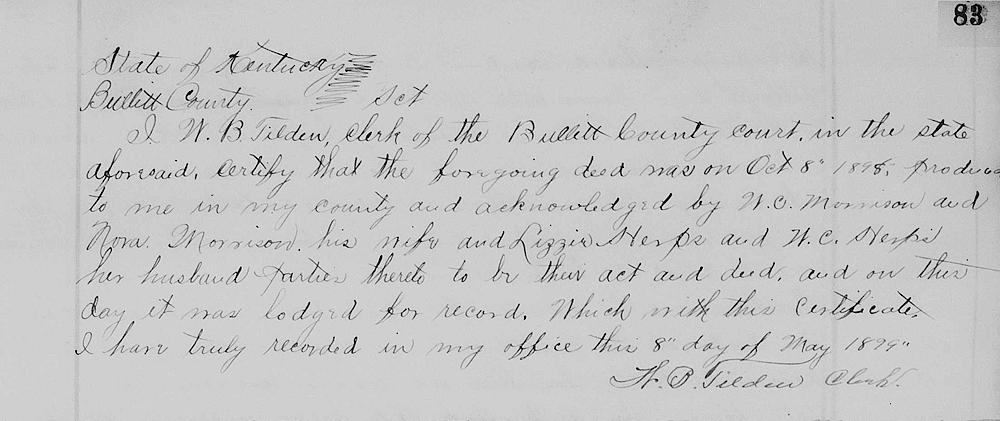 83
State of Kentucky
Bullitt County. Sct
I. W. B. Tilden, clerk of the Bullitt County court, in the state
aforesaid, certify that the foregoing deed was on Oct 8" 1898, produced
to me in my county and acknowledged by W.C. Morrison and
Nora. Morrison. his wife and Lizzie Herps and W.C. Herps
her husband parties thereto to be their act and deed, and on this
day it was lodged for record. Which with this certificate,
I have truly recorded in my office this 8" day of May 1899"
W. B. Tilden Clerk.